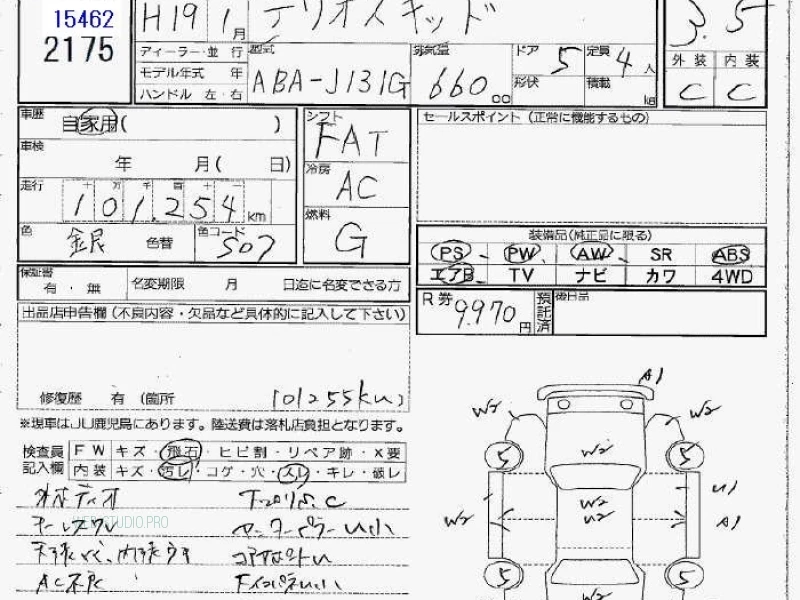 15462
2175
H19 年 1月
テリオスキッド
3.5
ディーラー・並行
モデル年式 年
ハンドル 左・右
型式
ABA-J131G
排気量
660 cc
ドア
5
形状
定員
4人
積載
kg
外装 内装
C C
車歴
自家用( )
車検
年 月( 日)
走行
十 万 千 百 十 一
101,254 km
色
銀 色替
色コード
S07
シフト
FAT
冷房
AC
燃料
G
セールスポイント (正常に機能するもの)
装備品(純正品に限る)
PS PW AW SR ABS
エアB TV ナビ カワ 4WD
保証書
有・無
名変期限 月 日迄に名変できる方
R券
9,970円
預託済
後日品
出品店申告欄 (不良内容・欠品など具体的に記入して下さい)
修復歴 有 (箇所
(101255km)
※現車はJU鹿児島にあります。陸送費は落札店負担となります。
検査員記入欄
FW キズ・飛石・ヒビ割・リペア跡・X要
内装 キズ・汚レ・コゲ・穴・スレ・キレ・破レ
オーディオ
キーレス
AC不良
A1
W2 W2
5 5
W2
W2
U2
W2
U1
A1
5 5
W2